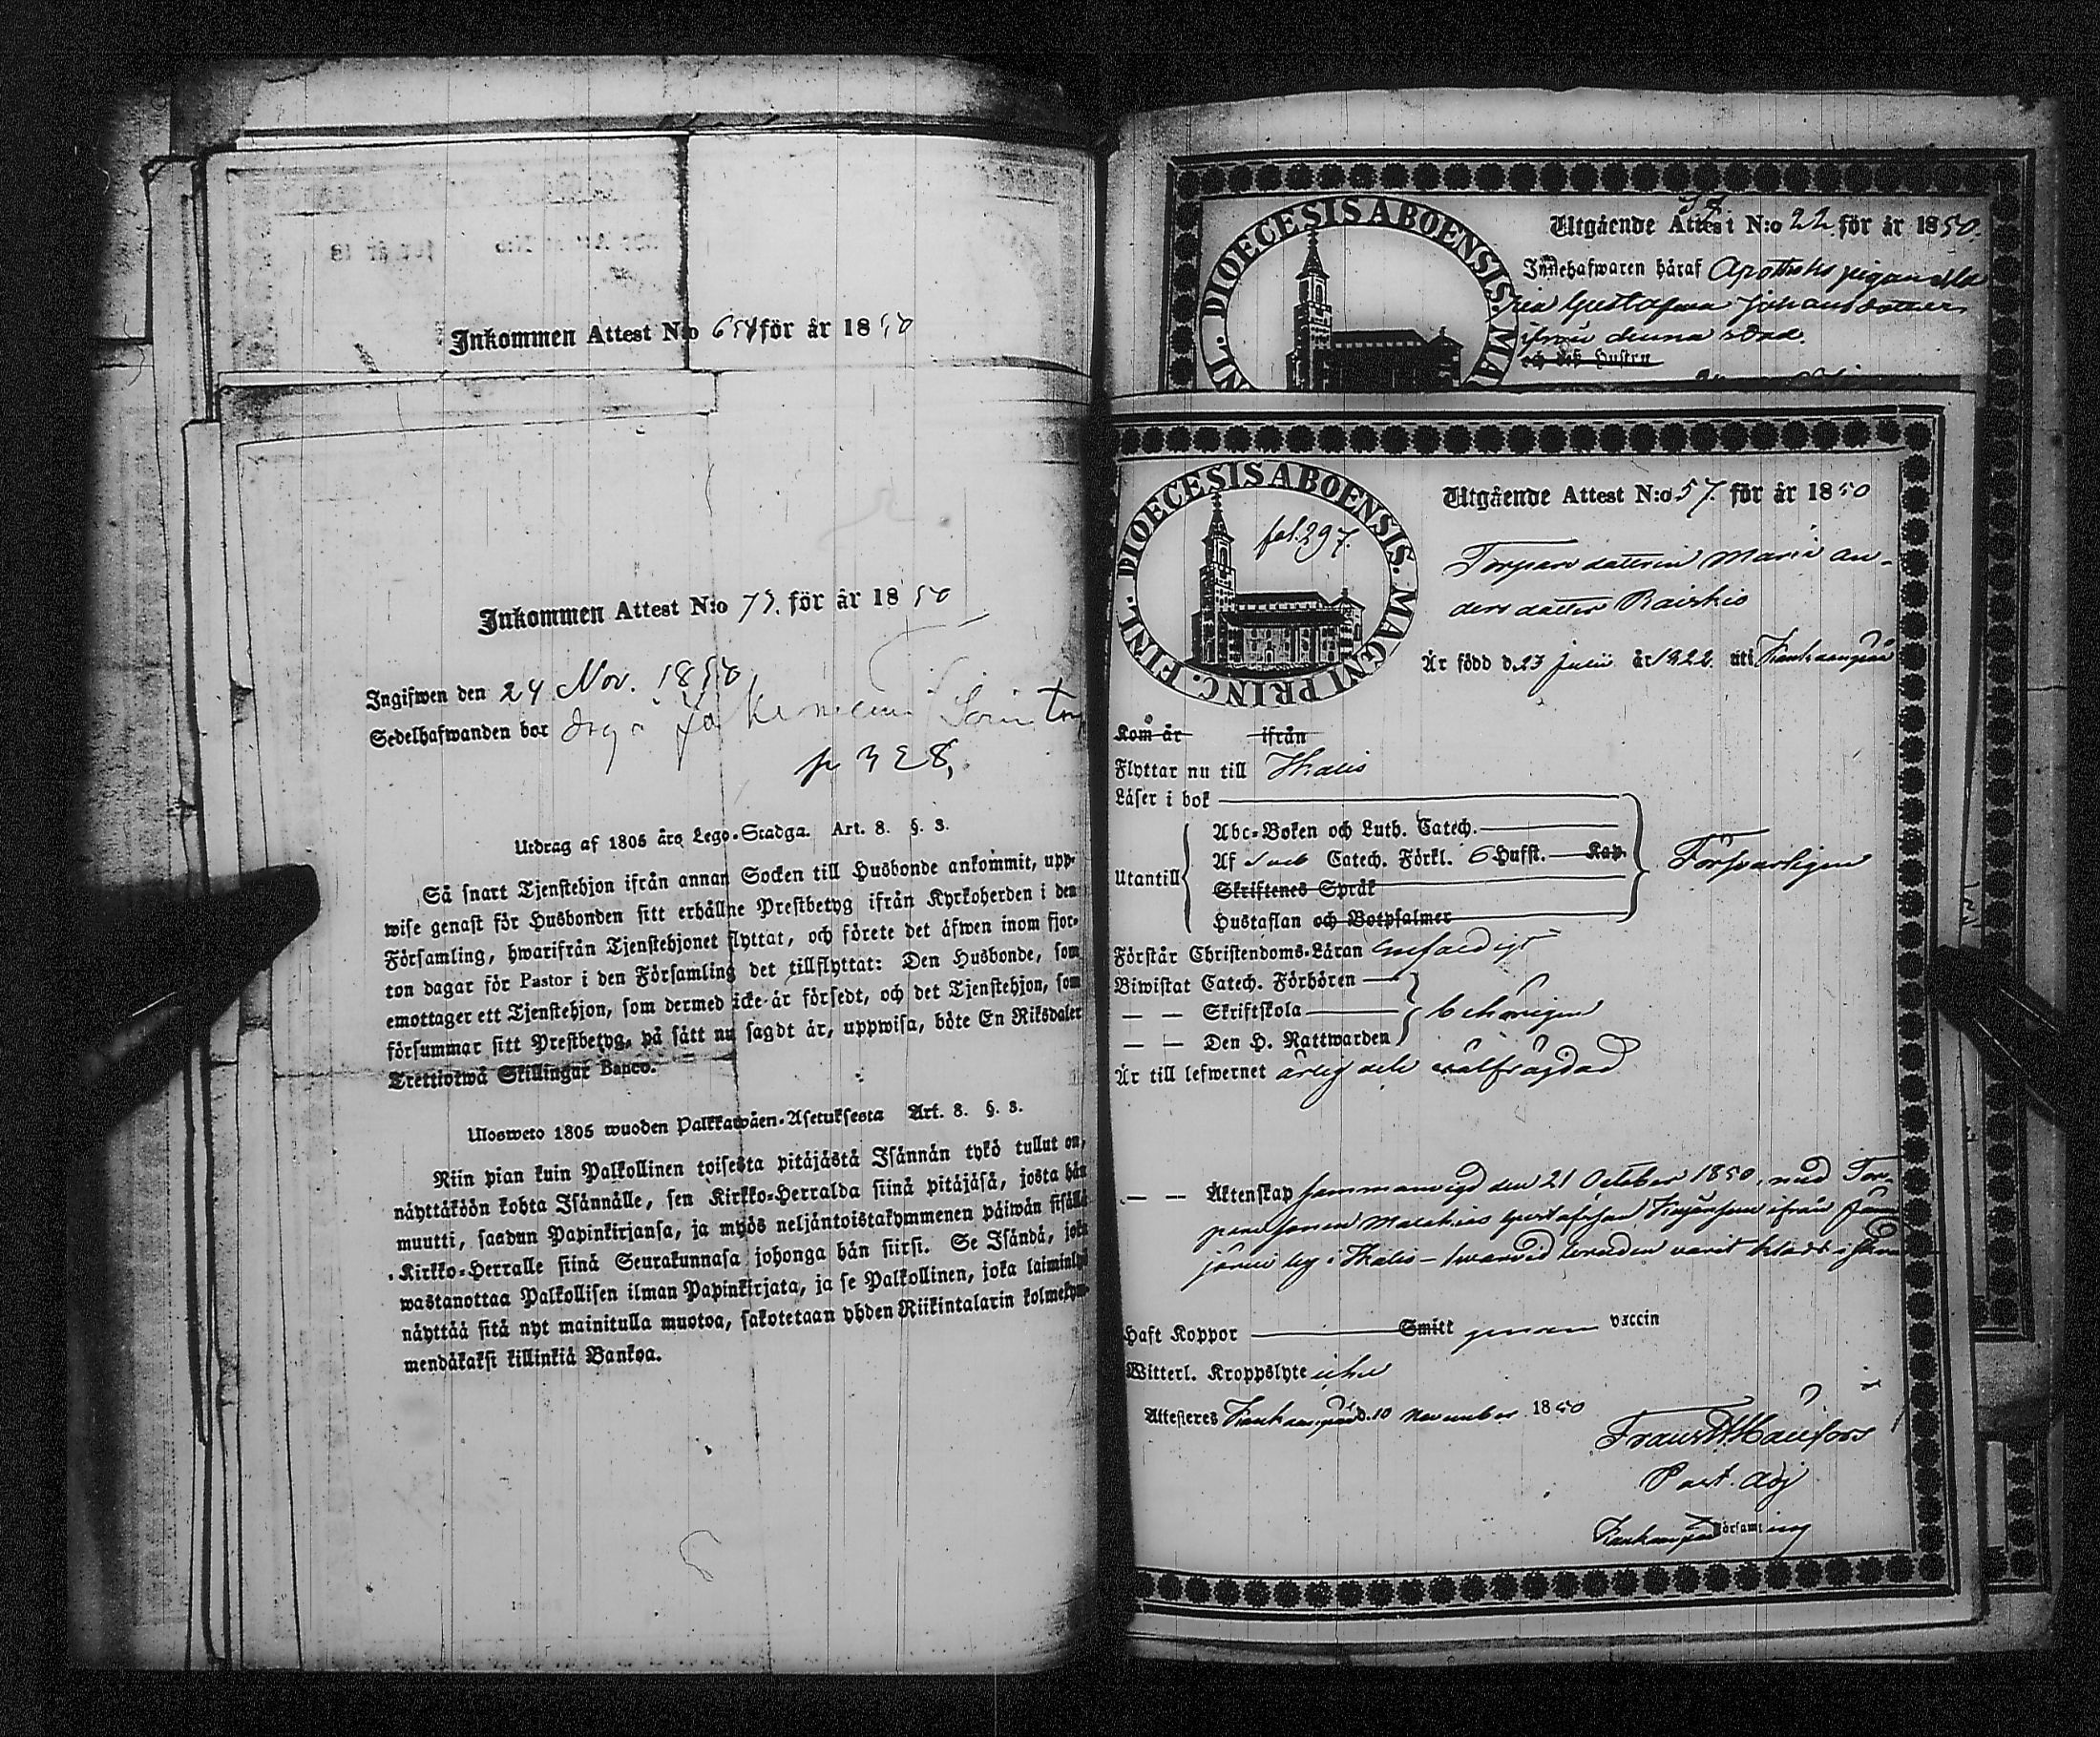 Inkommen Attest N:o 65 för år 1850
Inkommen Attest N:o 75. för år 1850
Ingifwen den 24 Nov. 1850
Sedelhafwanden bor
p 328,
Utdrag af 1805 års Lego-Stadga. Art. 8. §. 3.
Så snart Tjenstehjon ifrån annan Socken till Husbonde ankommit, upp-
wise genast för Husbonden sitt erhållne Prestbetyg ifrån Kyrkoherden i den
Församling, hwarifrån Tjenstehjonet flyttat, och förete det äfwen inom fjor-
ton dagar för Pastor i den Församling det tillflyttat: Den Husbonde, som
emottager ett Tjenstehjon, som dermed icke är försedt, och det Tjenstehjon, som
försummar sitt Prestbetyg, på sätt nu sagdt är, uppwisa, böte En Riksdaler
Trettiotwå Skillingar Banco.
Ulosweto 1805 wuoden Palkkawäen-Asetuksesta Art. 8. §. 3.
Niin pian kuin Palkollinen toisesta pitäjästä Isännän tykö tullut on,
näyttäköön kohta Isännälle, sen Kirkko-Herralda siinä pitäjäsä, josta hän
muutti, saadun Papinkirjansa, ja myös neljäntoistakymmenen päiwän sisällä
Kirkko-Herralle siinä Seurakunnasa johonga hän siirsi. Se Isändä, joka
wastanottaa Palkollisen ilman Papinkirjata, ja se Palkollinen, joka laiminlyö
näyttää sitä nyt mainitulla muotoa, sakotetaan yhden Riikintalarin kolmekym-
mendäkaksi killinkiä Bankoa.
DIOECESIS ABOENSIS. MA
Utgående Attest N:o 22 för år 1850.
Innehafwaren häraf Apotheks pigan
Gustafwa Johansdotter
ifrån denna stad.
och dess Hustru
DIOECESIS ABOENSIS. MAGNI PRINC. FINL.
fol. 297.
Utgående Attest N:o 57. för år 1850
Torpare dottern Maria An-
ders dotter Raiskio
Är född d. 23 Julii år 1822 uti Kankaanpää
Kom år ifrån
Flyttar nu till Ikalis
Läser i bok
Utantill
Abc-Boken och Luth. Catech.
Af Sveb Catech. Förkl. 6 Hufst. Kap.
Skriftenes Språk
Hustaflan och Botpsalmer
Försvarligen
Förstår Christendoms-Läran enfaldigt
Biwistat Catech. Förhören
— — Skriftskola
— — Den H. Nattwarden
behörigen
Är till lefwernet ärlig och välfrägdad
— — Äktenskap sammanvigd den 21 October 1850, med Tor-
pare sonen Matthias Gustafsson ifrån
järvi by i Ikalis – hvarvid bruden varit klädd i
Haft Koppor Smitt genom vaccin
Witterl. Kroppslyte icke
Attesteres Kankaanpää d. 10 November 1850
Frans
Past. Adj
Kankaanpää Församling